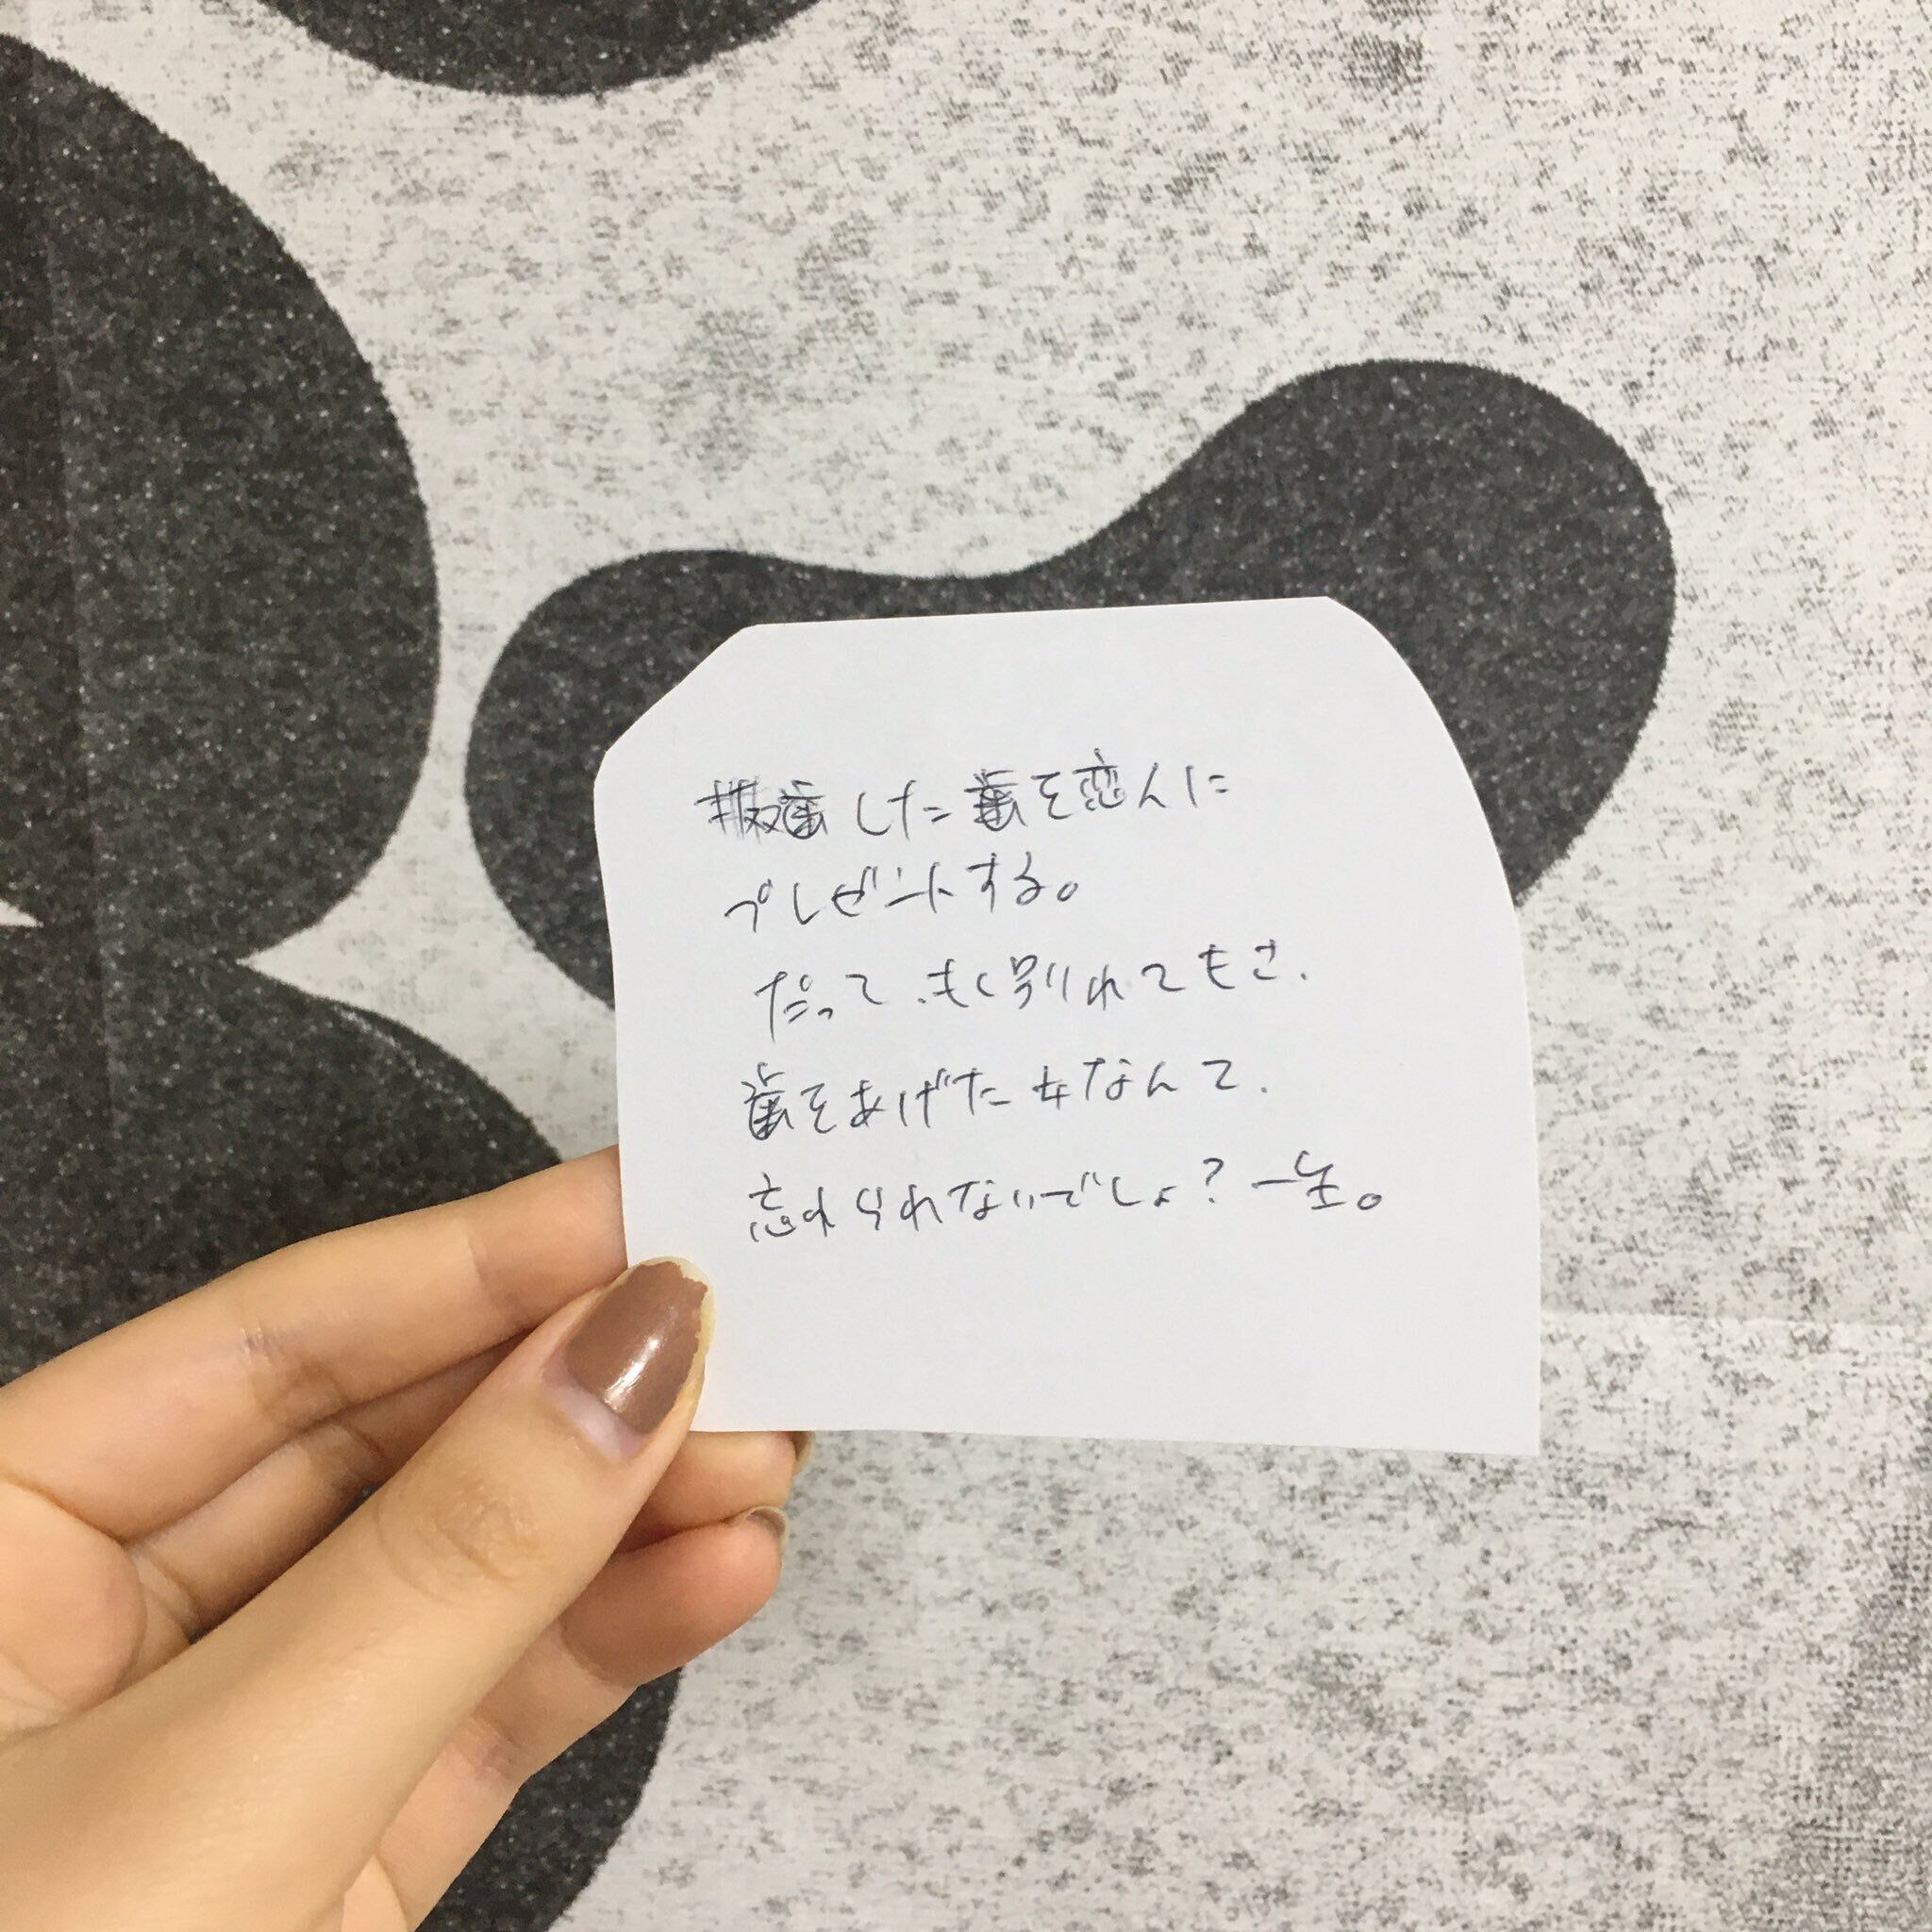 抜歯した歯を恋人に
プレゼントする。
だって、もし別れてもさ、
歯をあげた女なんて、
忘れられないでしょ？一生。